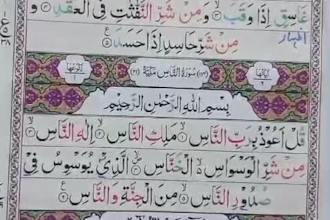 غَاسِقٍ اِذَا وَقَبَ ۙ وَ مِنْ شَرِّ النَّفّٰثٰتِ فِی الْعُقَدِ ۙ وَ
مِنْ شَرِّ حَاسِدٍ اِذَا حَسَدَ
سُوْرَةُ النَّاسِ
بِسْمِ اللّٰهِ الرَّحْمٰنِ الرَّحِيْمِ
قُلْ اَعُوْذُ بِرَبِّ النَّاسِ ۙ مَلِكِ النَّاسِ ۙ اِلٰهِ النَّاسِ ۙ
مِنْ شَرِّ الْوَسْوَاسِ ۙ الْخَنَّاسِ ۙ الَّذِیْ يُوَسْوِسُ فِیْ
صُدُوْرِ النَّاسِ ۙ مِنَ الْجِنَّةِ وَ النَّاسِ